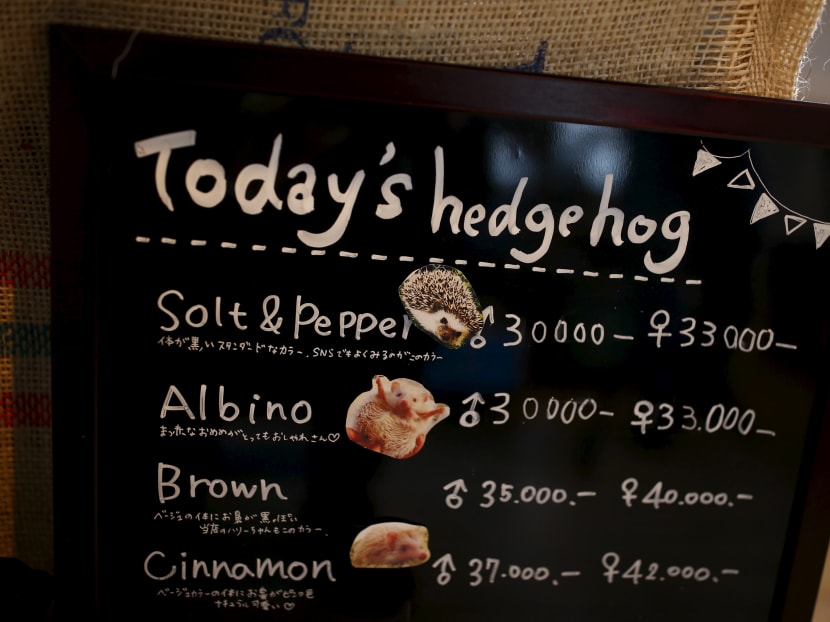 Today's hedgehog
Solt & Pepper ♂30000– ♀33000–
体が黒いスタンダードなカラー、SNSでもよくみるのがこのカラー
Albino ♂30000– ♀33.000–
まっ赤なおめめがとってもおしゃれさん♡
Brown ♂35.000.– ♀40.000.–
ベージュの体にお鼻が黒っぽい
当店のハリーちゃんもこのカラー.
Cinnamon ♂37.000.– ♀42.000.–
ベージュカラーの体にお鼻がピンク色
ナチュラル可愛い♡